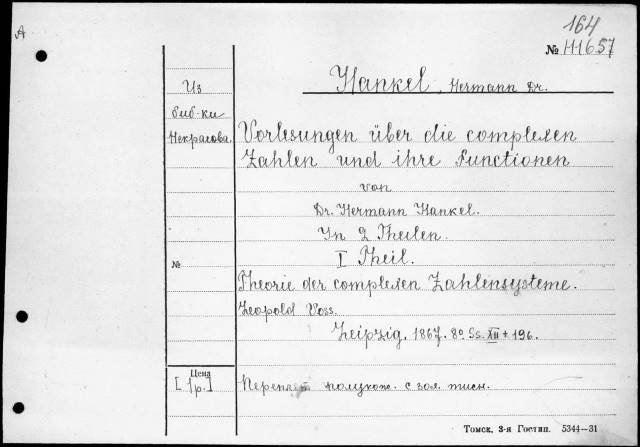 A
164
№ 111657
Hankel, Hermann Dr.
Из
биб-ки
Некрасова.
Vorlesungen über die complexen
Zahlen und ihre Functionen
von
Dr. Hermann Hankel.
In 2 Theilen.
I Theil.
№
Theorie der complexen Zahlensysteme.
Leopold Voss.
Leipzig. 1867. 8º. Ss. XII + 196.
Цена
[1 р.]
Переплет полукож. с зол. тисн.
Томск, 3-я Гостип. 5344—31